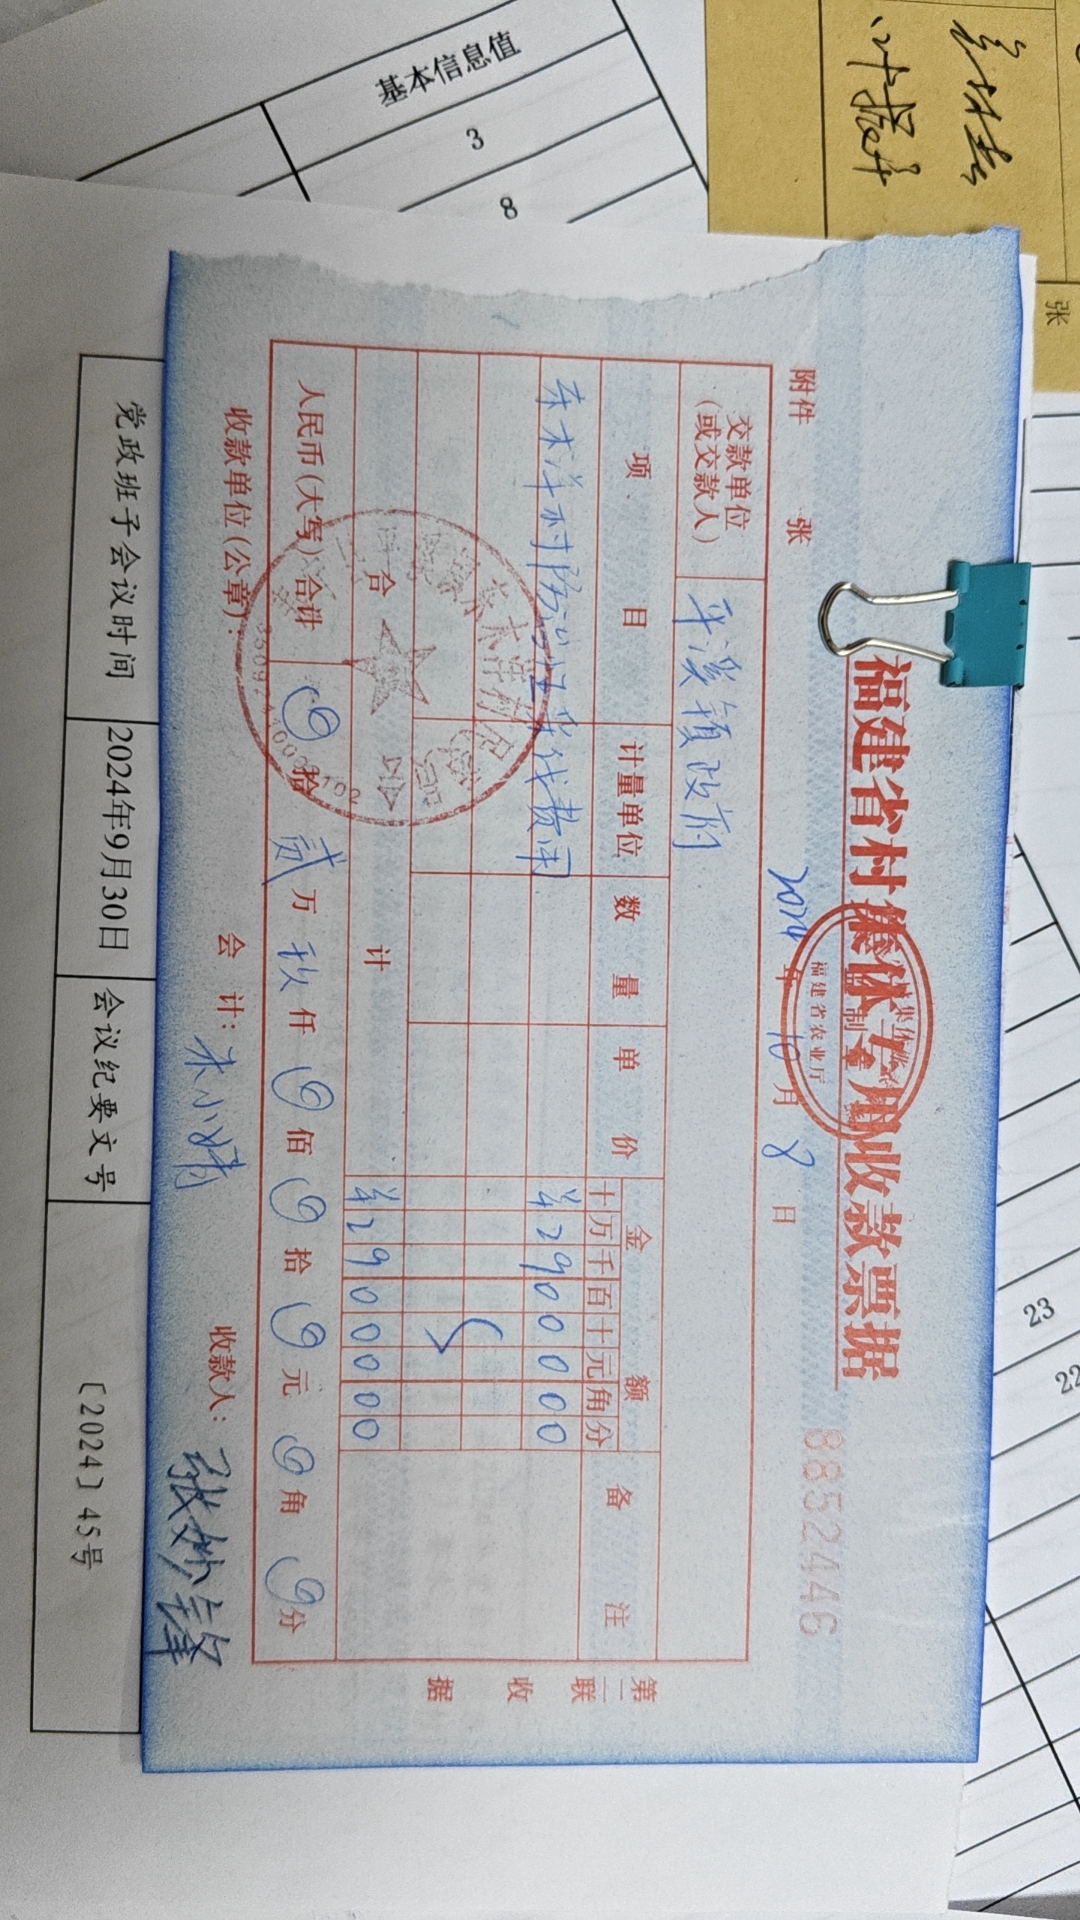 基本信息值
3
8
张
福建省村集体专用收款票据
8852446
福建省农业厅
附件 张
2024年10月8日
交款单位
(或交款人)
平溪镇政府
项目
计量单位
数量
单价
金额
备注
十万千百十元角分
东木洋村防汛
费用
¥2900000
合计
¥2900000
人民币(大写)合计
0拾贰万玖仟0佰0拾0元0角0分
收款单位(公章):
会计:
收款人:
第二联
收据
党政班子会议时间
2024年9月30日
会议纪要文号
〔2024〕45号
23
22